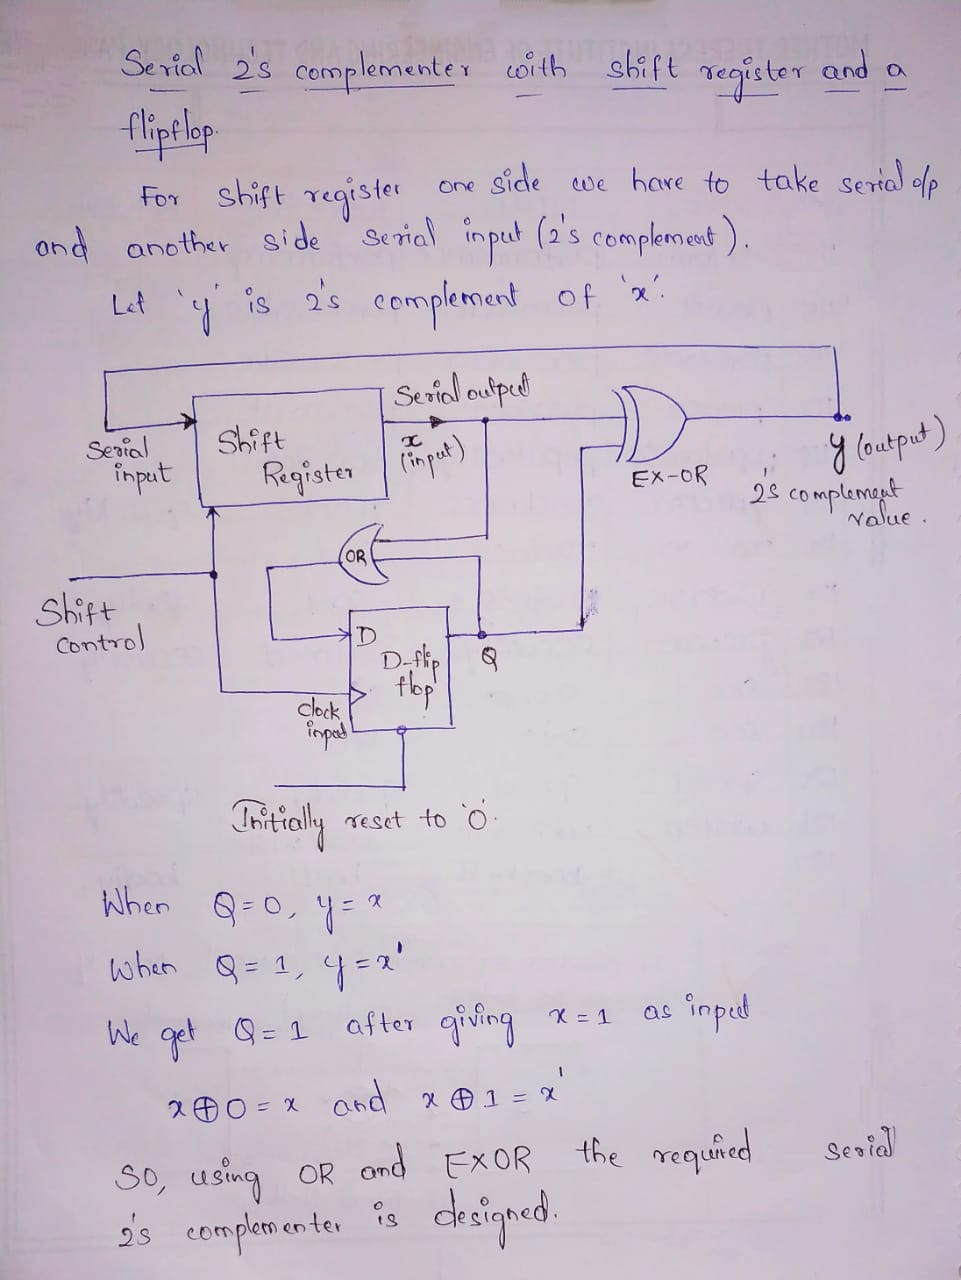 Serial 2's complementer with shift register and a
flipflop.
For shift register one side we have to take serial o/p
and another side serial input (2's complement).
Let 'y' is 2's complement of 'x'.
Serial output
Serial
input
Shift
Register
x
(input)
EX-OR
y (output)
2's complement
value.
OR
Shift
control
D
D-flip
flop
Q
clock
input
Initially reset to '0'.
When Q=0, y=x
When Q=1, y=x'
We get Q=1 after giving x=1 as input
x⊕0=x and x⊕1=x'
So, using OR and EXOR the required serial
2's complementer is designed.